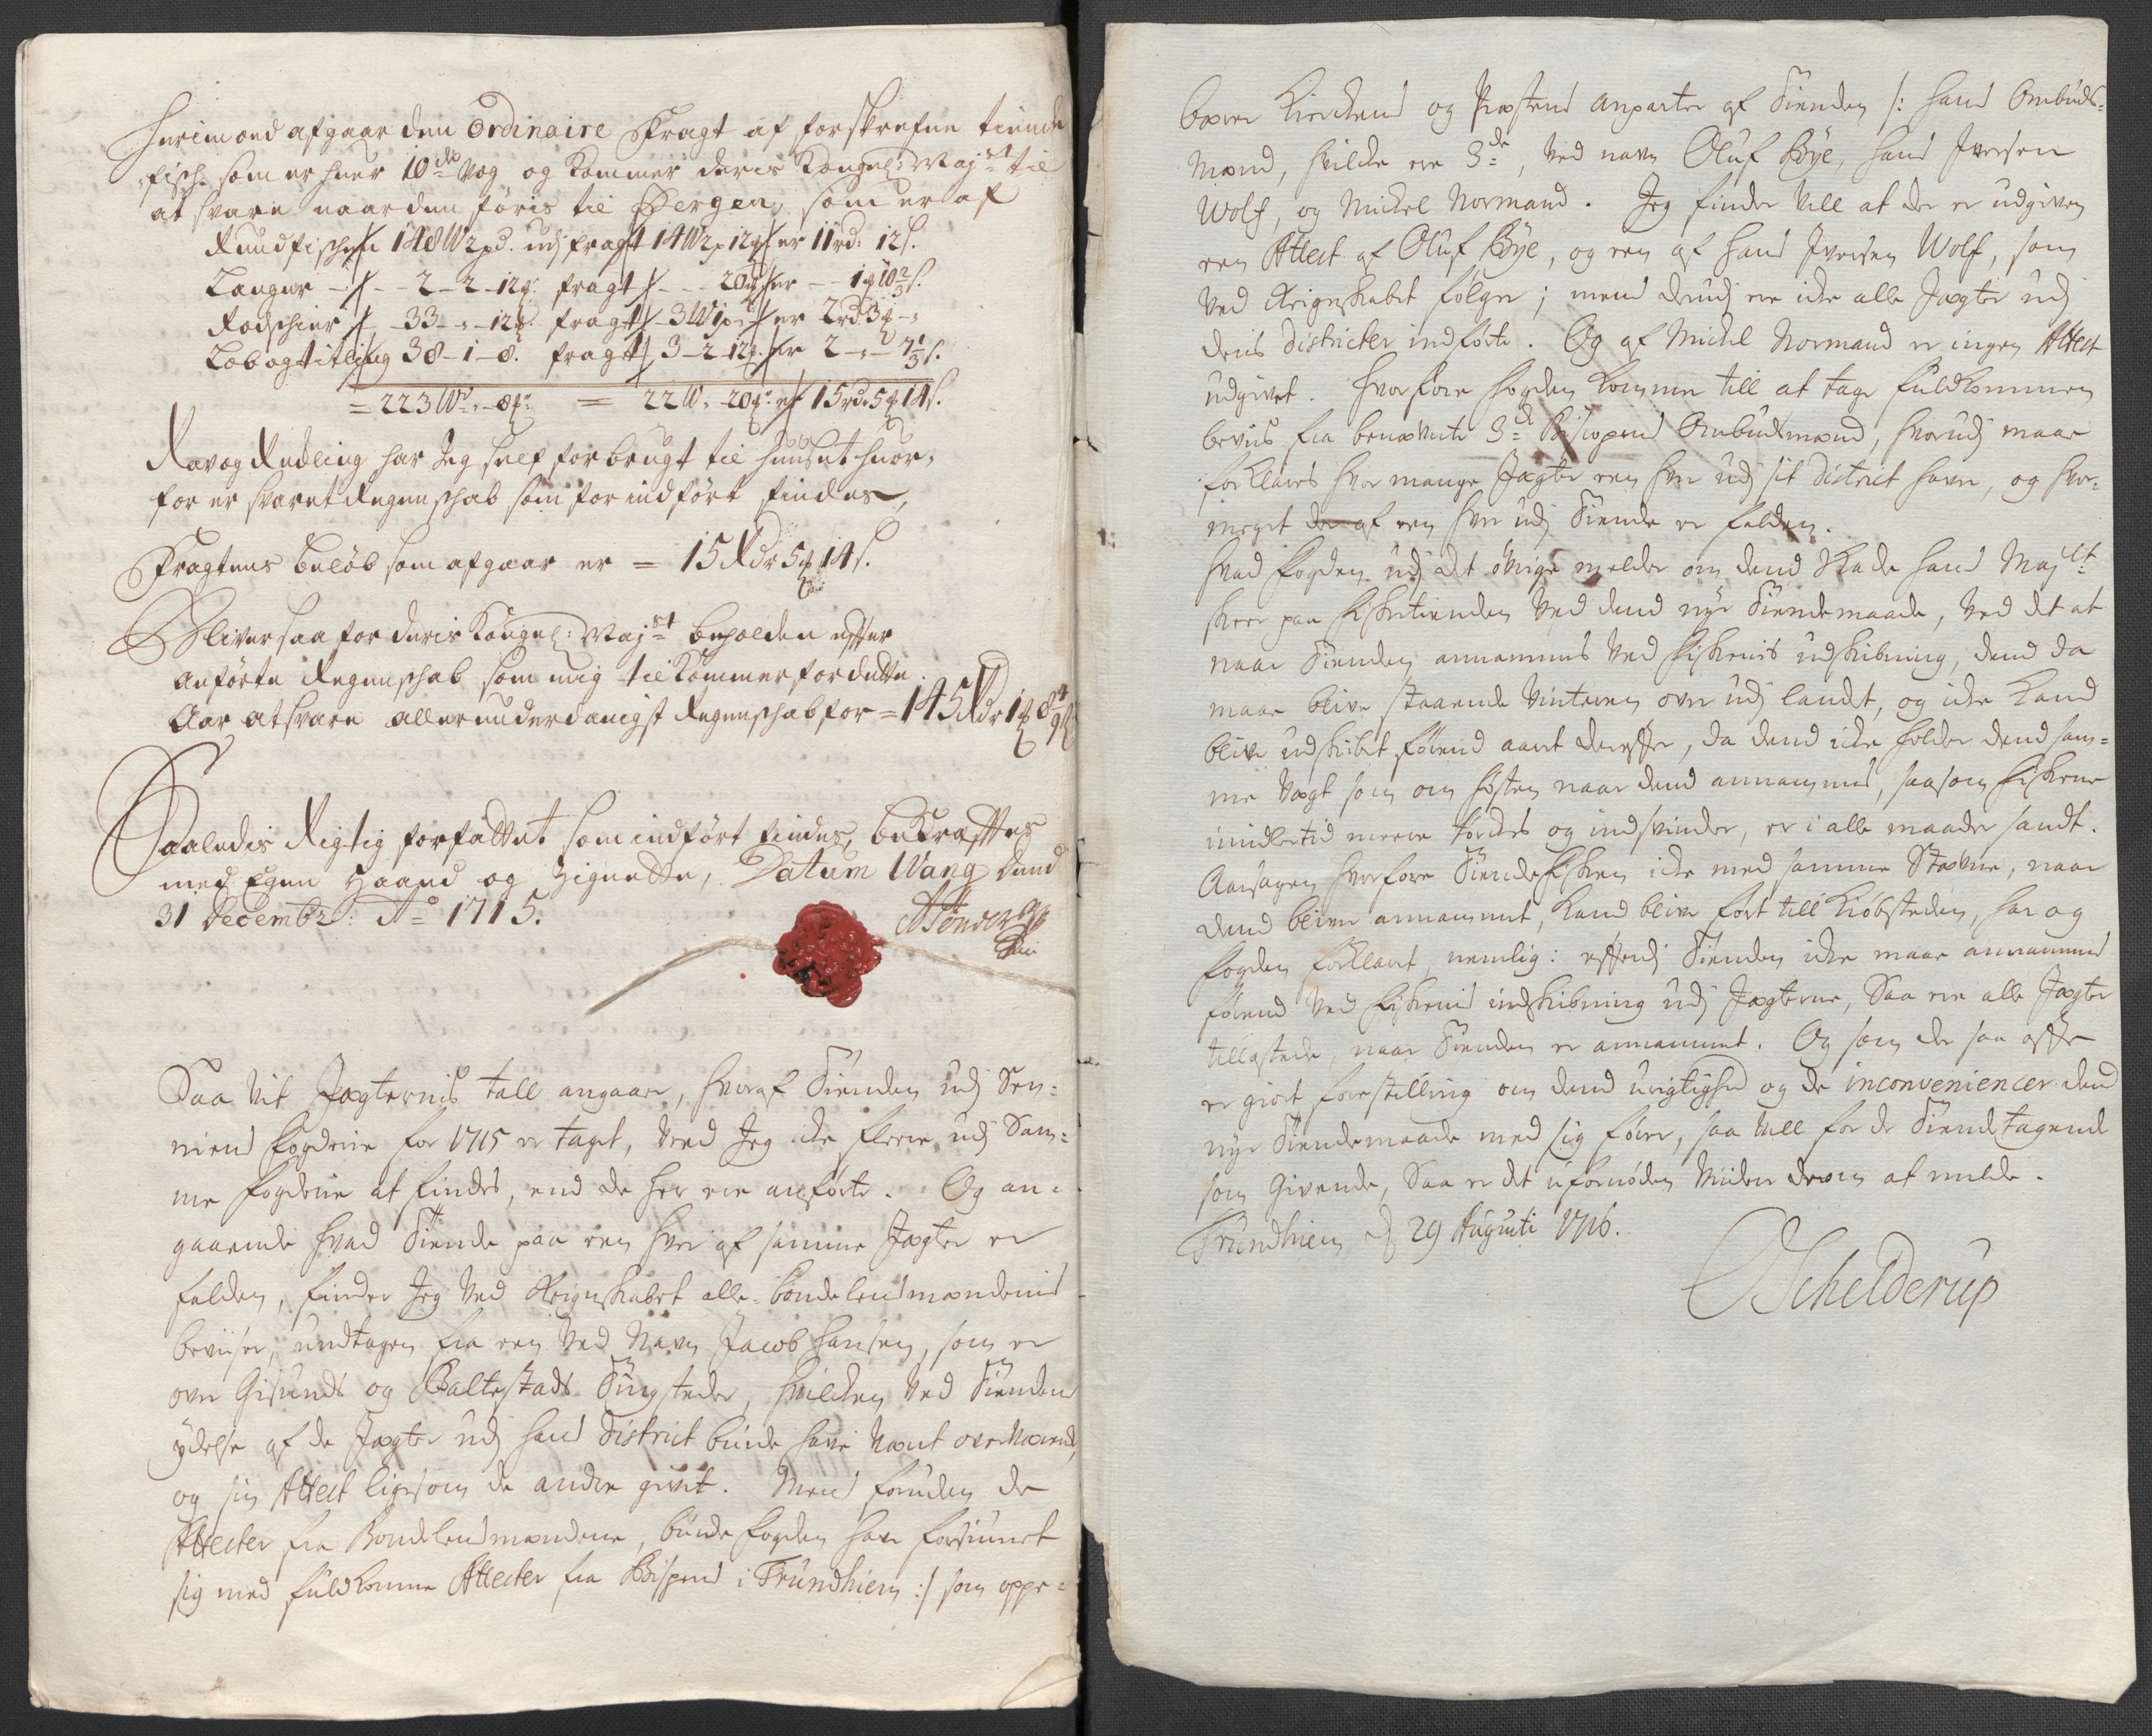 Herimod afgaar den Ordinaire Fragt af forskrefne tiende
fisch som er huer 10de Vog og kommer deris Kongel: Maj:st til
at svare naar den føris til Bergen, som er af
Rundfischen 148W 2pd. udj fragt 14W 2p 12℔ er 11rd: 12s.
Langer - - 2 - 2 - 12℔: fragt - - 20℔ er - 1℔ 10 2/3 s.
Rodschier - 33 - „ - 12℔. fragt - 3W 1p „ er 2rd 3℔ - „
Lob og titling 38 - 1 - 8. fragt 3 - 2 - 12℔. er 2 - „ - 7 1/3 s.
= 223W „ - 8℔: = 22W „ 20℔: er 15rd 5℔ 14s.
Rav og Rekling har Jeg self forbrugt til huuset huor,
for er svaret Regenschab som for indført findes,
Fragtens beløb som afgaar er = 15Rdr 5℔ 14s.
Bliver saa for deris Kongel: Maj:st beholden effter
anførte Regenschab som mig tilkommer for dette
Aar at svare allerunderdanigst Regenschab for = 145Rdr 1℔ 8 4/9 s
Saaledis Rigtig forfattet som indført findes, bekræfftes
med Egen Haand og Zignette, Datum Wang dend
31 Decembr: Ao 1715.
ATønder
Saa vit Jægternis tall angaar, hvoraf Tienden udj Sen:
niens fogderie for 1715 er taget, veed Jeg icke fleere udj Sam:
me fogderie at findes, end de her ere anførte. Og an:
gaaende hvad Tiende paa een hver af samme Jægter er
falden, finder Jeg ved Reigenskabet alle bondelensmændenis
beviiser, undtagen fra een ved Navn Jacob Hansen, som er
over Gisunds og Baltestads Tingsteder, hvilken ved Tiendens
ydelse af de Jægter udj hans District burde have været overværend,
og sin Attest ligesom de andre givet. Mens foruden de
Attester fra Bondelensmændene, burde fogden have forsiunet
sig med fuldkomne Attester fra Bispens i Trundhiem :/ som oppe:
bærer Kierkens og Præstens anparter af Tienden /: hans Ombuds:
mænd, hvilcke ere 3de, ved navn Oluf Bøye, Hans Iversen
Wolf, og Mickel Normand. Jeg finder vell at der er udgiven
een Attest af Oluf Bøye, og een af Hans Iversen Wolf, som
ved Reigenskabet følger; mens derudj ere icke alle Jægter udj
deris Districter indførte. Og af Mickel Normand er ingen Attest
udgivet. Hvorfore fogden kommer till at tage fuldkommen
beviis fra benævnte 3de Biskopens Ombudsmænd, hvorudj maae
forklares hvor mange Jægter een hver udj sit District haver, og hvor:
meget der af een hver udj Tiende er falden.
Hvad fogden udj det øvrige melder om dend Skade hans Maj:st
skeer paa fisketienden ved dend nye Tiendemaade, ved det at
naar Tienden annammes ved fiskenis udskibning, dend da
maae blive staaende vinteren over udj landet, og icke kand
blive udskibet førend aaret dereffter, da dend icke holder dend sam=
me vægt som om høsten naar dend annammes, saasom fiskene
imidlertid meere tørckes og indsvinder, er i alle maader sandt.
Aarsagen hvorfore Tiendefisken icke med samme Stævne, naar
dend bliver annammet, kand blive ført till Kiøbsteden, har og
fogden forklaret, nemlig: efftterdj Tienden icke maae annammes
førend ved fiskenis indskibning udj Jægterne, Saa ere alle Jægter
tillastede, naar Tienden er annammet. Og som der saa offte
er giort forestilling om dend urigtighed og de inconveniencer dend
nye Tiendemaade med sig fører, saa vell for de Tiendetagende
som Givende, Saa er det ufornøden videre derom at melde.
Trundhiem d 29 Augusti 1716.
OSchelderup